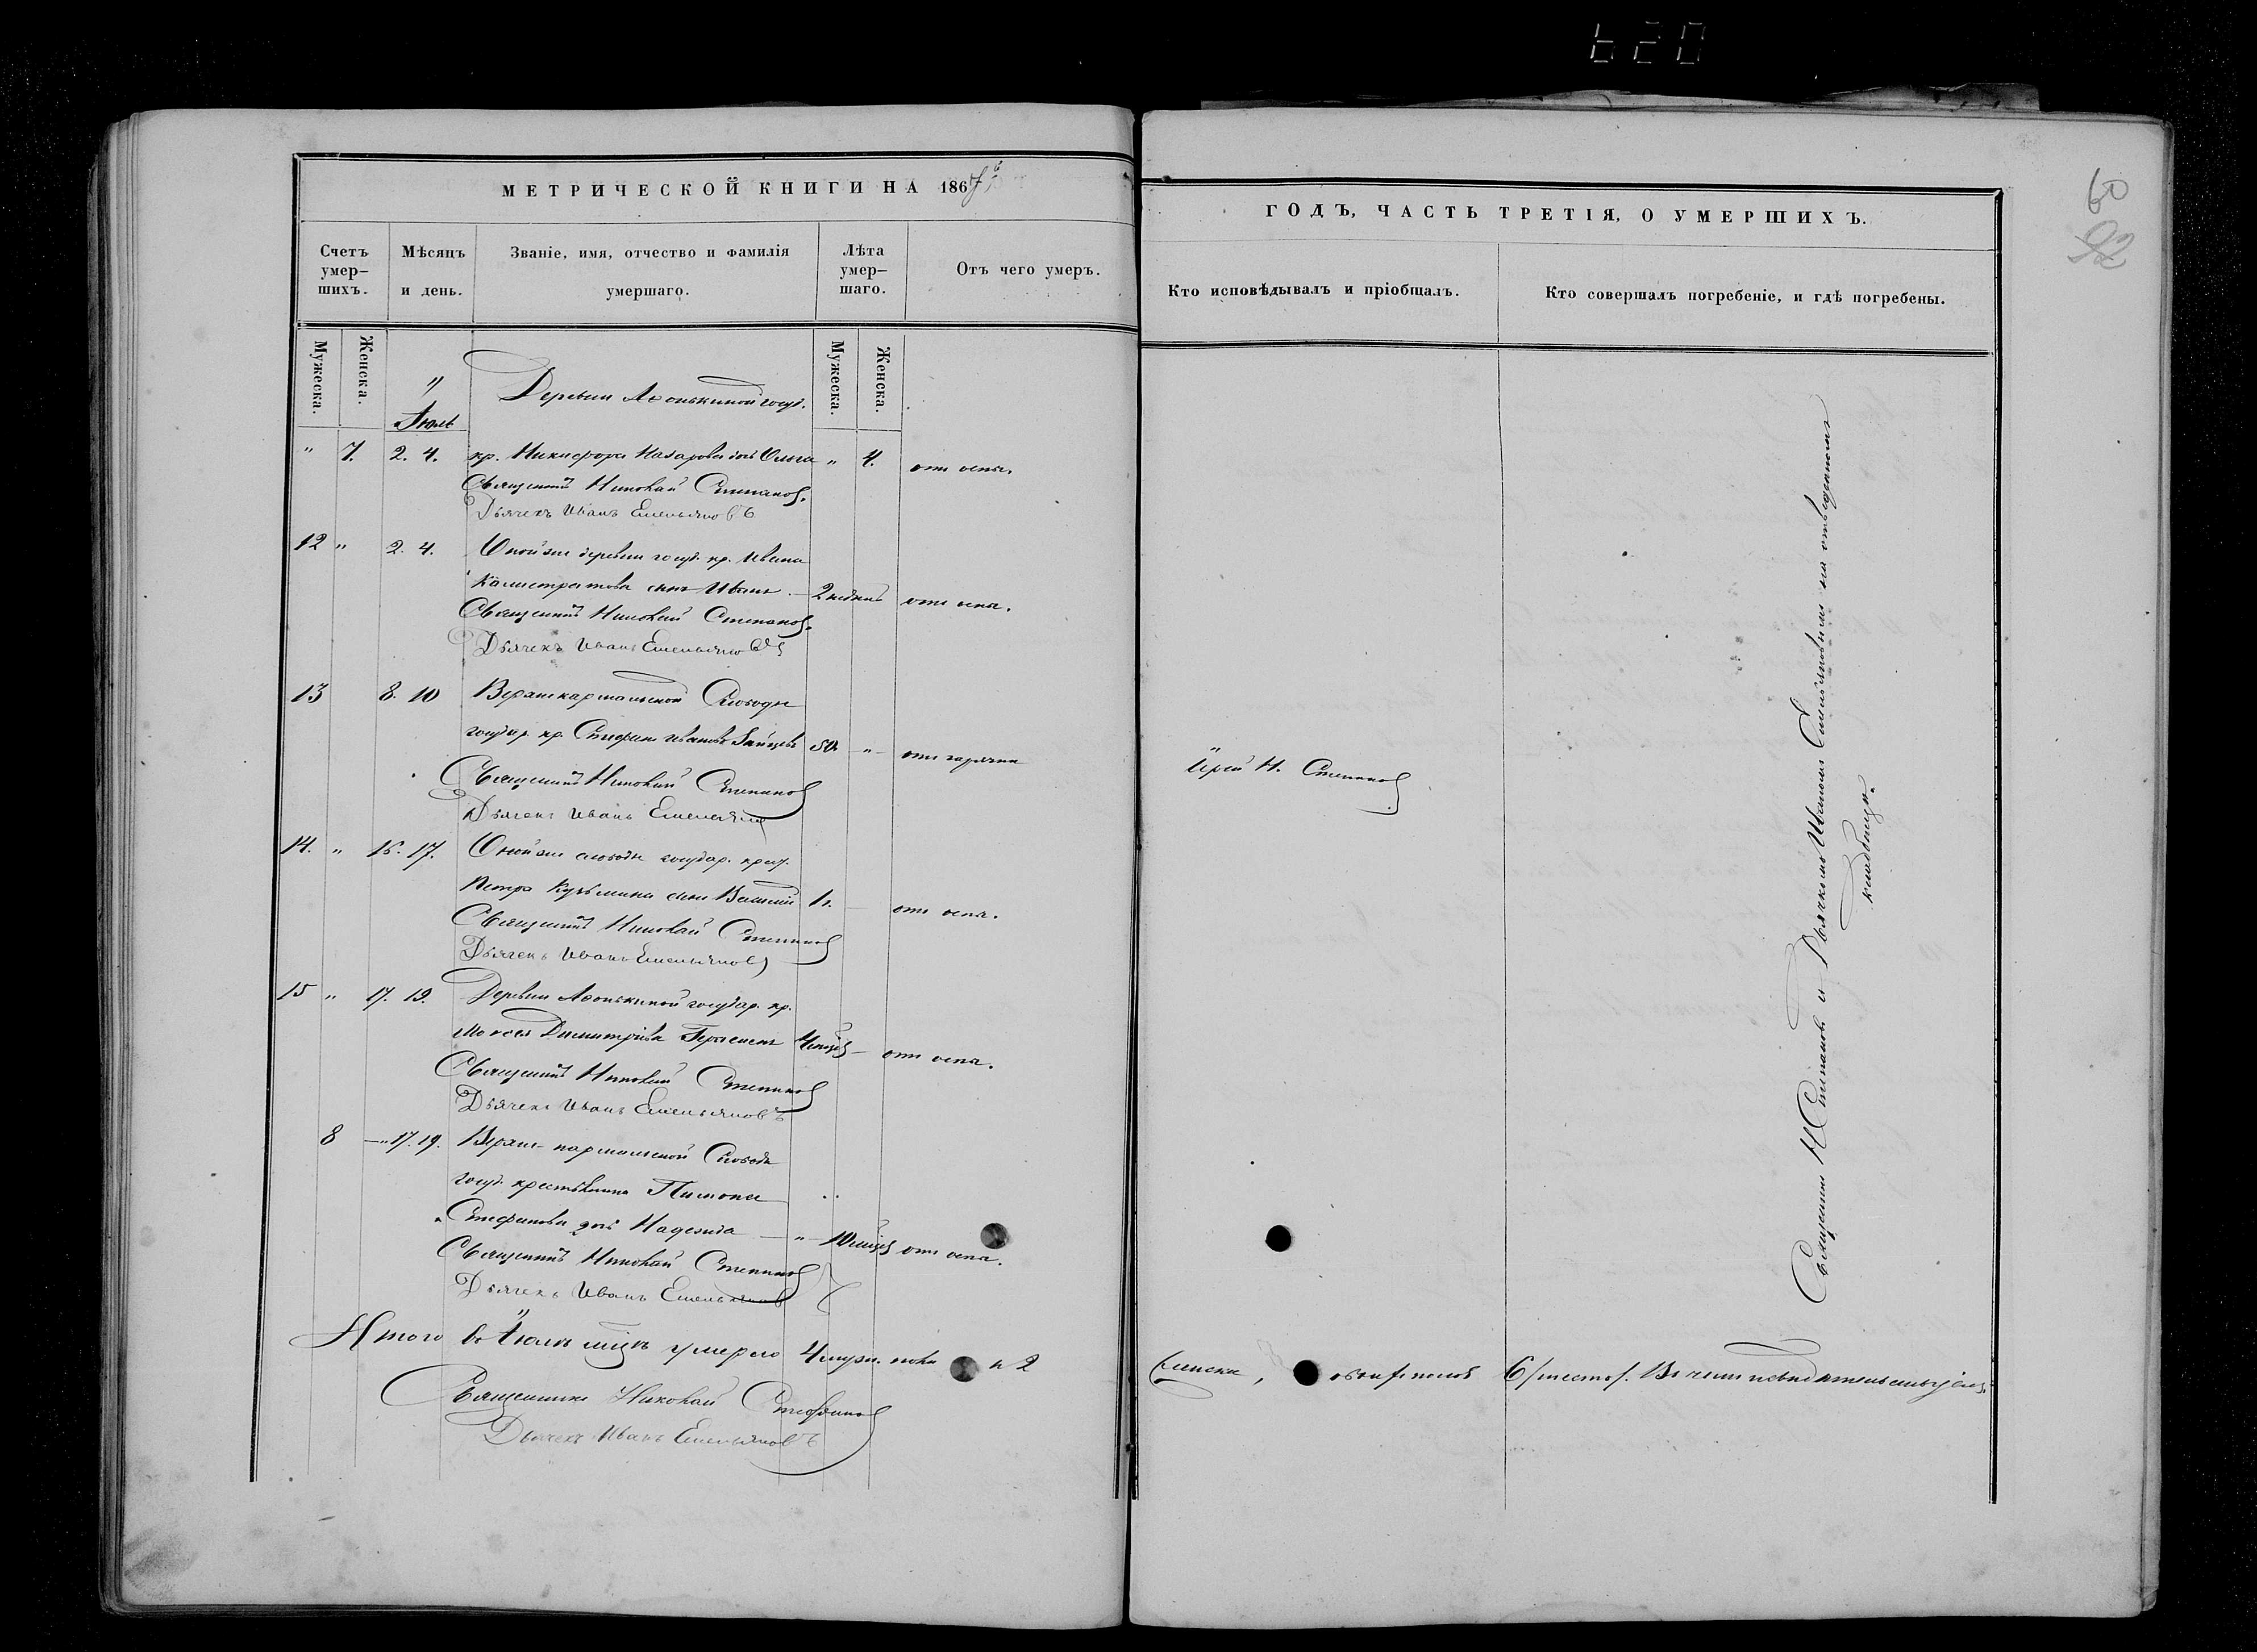 620
60
92
МЕТРИЧЕСКОЙ КНИГИ НА 1867
ГОДЪ, ЧАСТЬ ТРЕТІЯ, О УМЕРШИХЪ.
Счетъ умер-шихъ.
Мѣсяцъ и день.
Званіе, имя, отчество и фамилія умершаго.
Лѣта умер-шаго.
Отъ чего умеръ.
Кто исповѣдывалъ и пріобщалъ.
Кто совершалъ погребеніе, и гдѣ погребены.
Мужеска.
Женска.
Мужеска.
Женска.
Іюль
Деревни Афонькиной госуд.
" 7. 2. 4. кр. Никифора Назарова дочь Ольга " 4. отъ оспы.
Священникъ Николай Степановъ.
Дьячекъ Иванъ Емельяновъ
12 " 2. 4. Оной же деревни госуд. кр. Ивана
Калистратова сынъ Иванъ 2 недѣли отъ оспы.
Священникъ Николай Степановъ.
Дьячекъ Иванъ Емельяновъ
13 8. 10 Слободы
государ. кр. Стефанъ Ивановъ Зайцевъ 50 " отъ горячки
Іерей Н. Степановъ
Священникъ Николай Степановъ
Дьячекъ Иванъ Емельяновъ
14. " 15. 17. Оной же слободы государ. крест.
Петра Кузьмина сынъ Василій 1 г. отъ оспы.
Священникъ Николай Степановъ
Дьячекъ Иванъ Емельяновъ
15 " 17. 19. Деревни Афонькиной государ. кр.
Моисея Димитріева 4 отъ оспы.
Священникъ Николай Степановъ
Дьячекъ Иванъ Емельяновъ
8 " 17. 19. Слободы
госуд. крестьянина Пимона
Стефанова дочь Надежда " 10 отъ оспы.
Священникъ Николай Степановъ
Дьячекъ Иванъ Емельяновъ
Итого въ Іюлѣ м-цѣ умерло 4 муж. пола и 2
женска, обоего полов 6/шесть/. Въ чемъ и свидѣтельствуемъ
Священникъ Николай Стефановъ
Дьячекъ Иванъ Емельяновъ
Священникъ Н Степановъ и Дьячкомъ Иваномъ Емельяновымъ на отведенномъ
кладбищѣ.